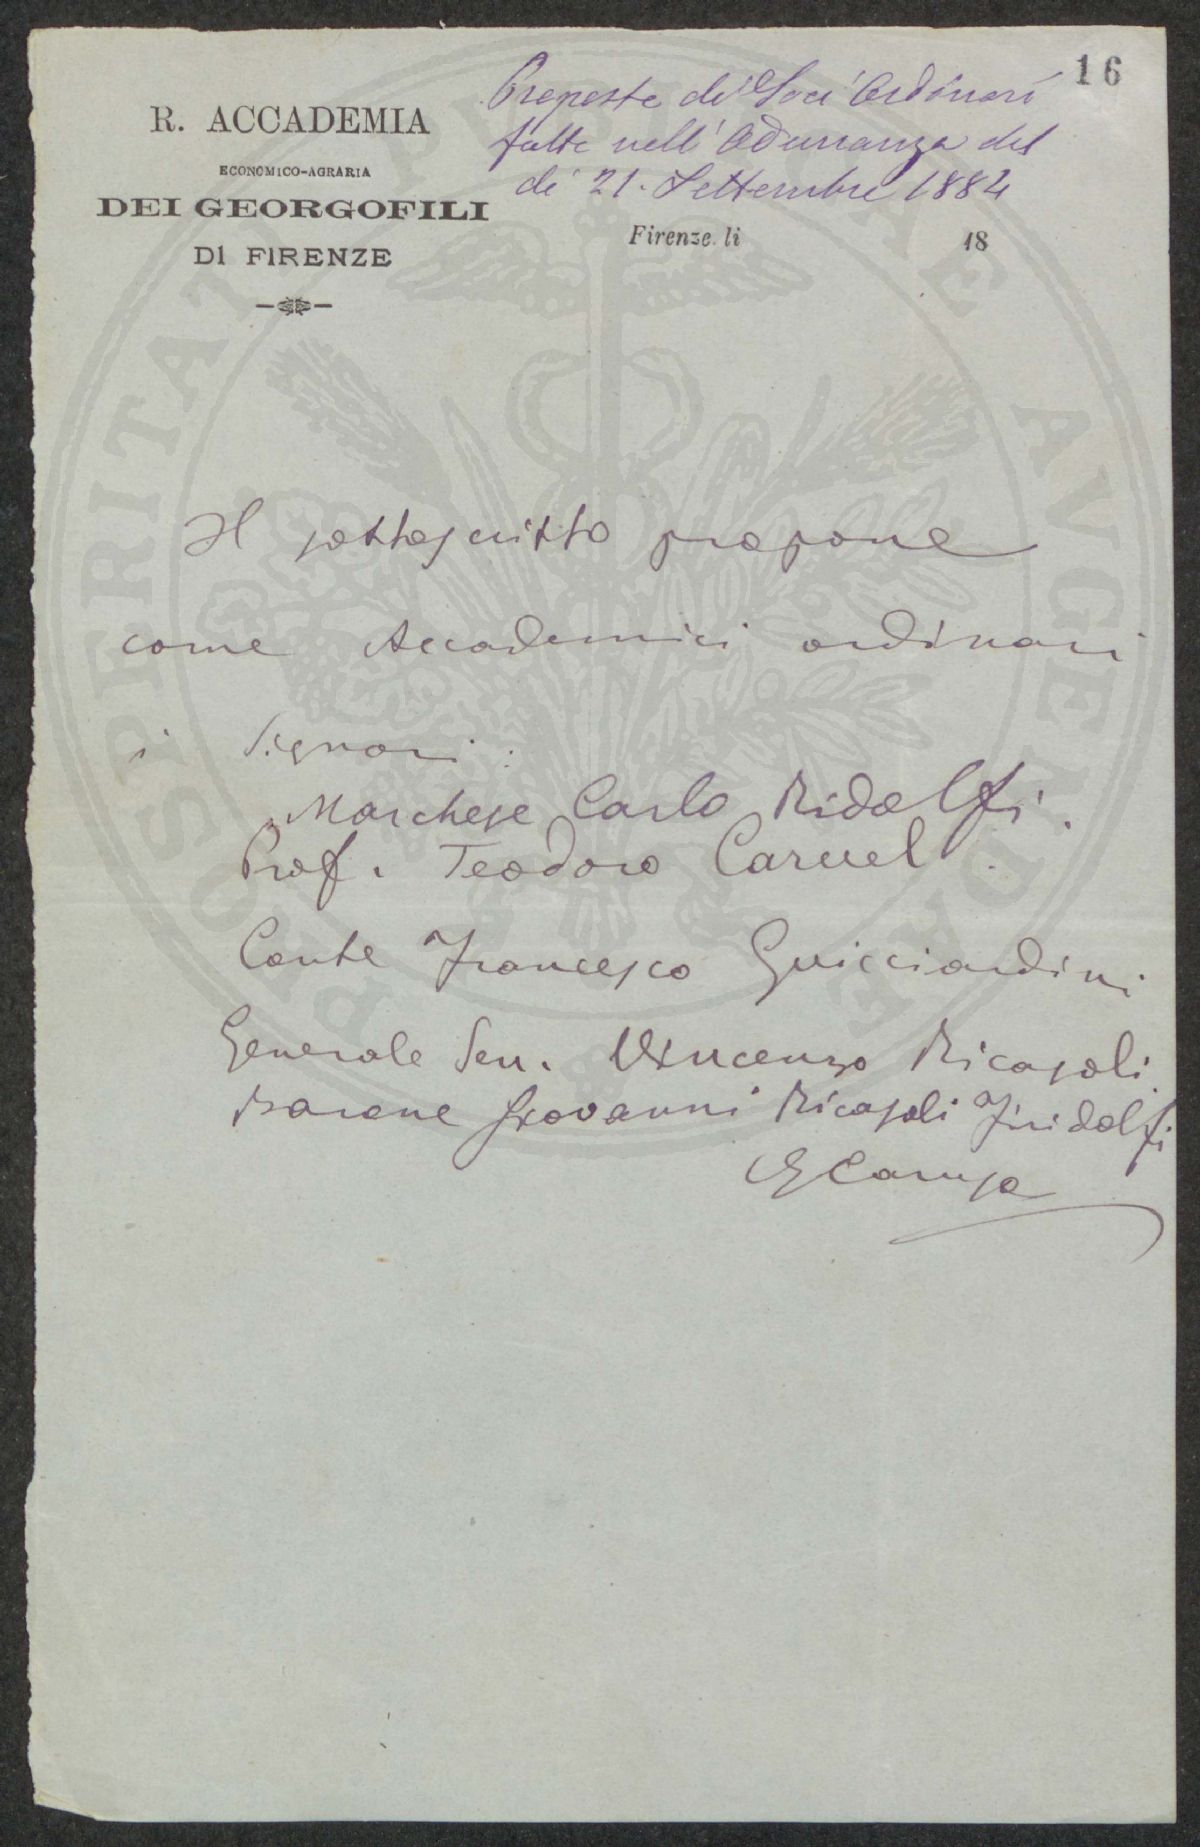 16
R. ACCADEMIA
ECONOMICO-AGRARIA
DEI GEORGOFILI
DI FIRENZE
Proposte di Soci Ordinari
fatte nell'Adunanza del
dì 21. Settembre 1884
Firenze li 18
Il sottoscritto propone
come Accademici ordinari
i Signori:
Marchese Carlo Ridolfi.
Prof. Teodoro Caruel.
Conte Francesco Guicciardini
Generale Sen. Vincenzo Ricasoli.
Barone Giovanni Ricasoli Firidolfi
G Caruso
PROSPERITATI PUBLICAE AUGENDAE